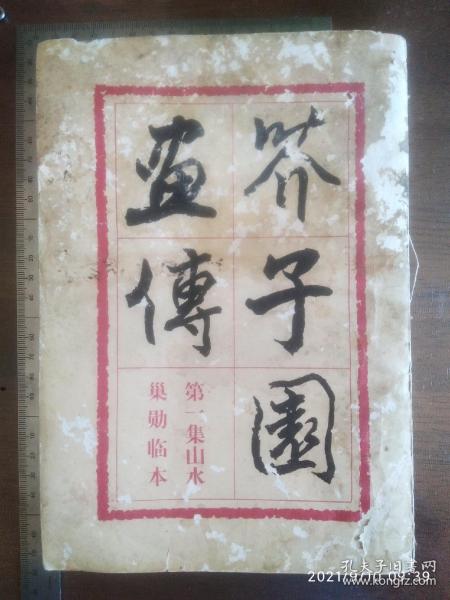 芥子園
畫傳
第一集山水
巢勋临本
孔夫子旧書网
2021/9/10 09:39
www.kongfz.com